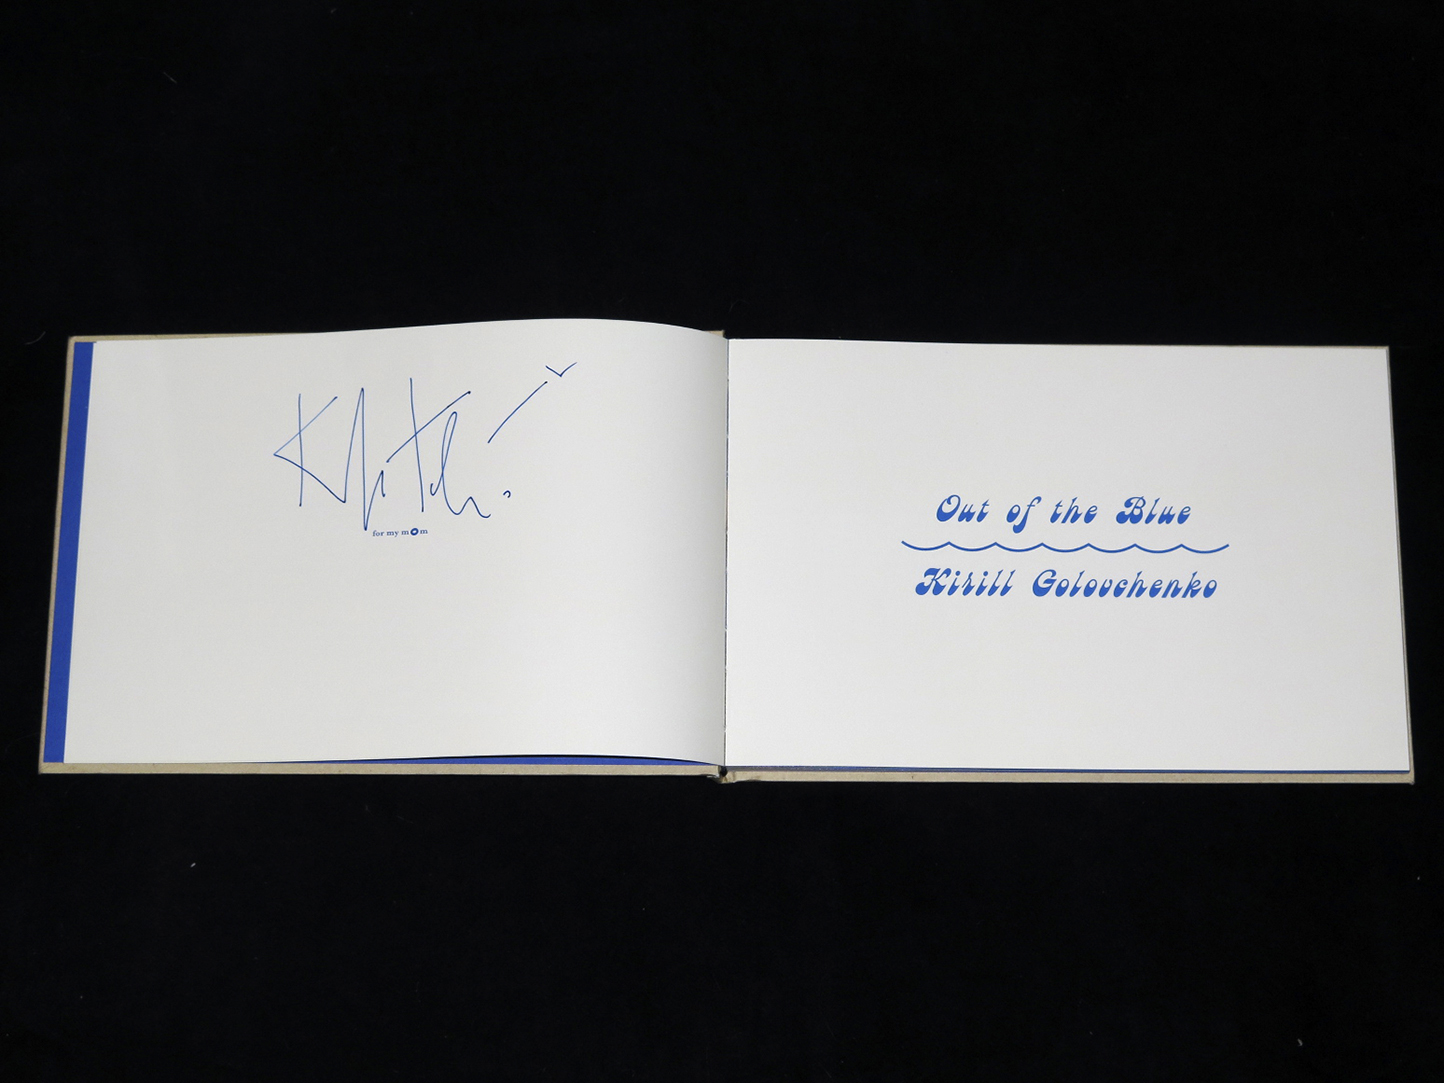 for my mom
Out of the Blue
Kirill Golovchenko